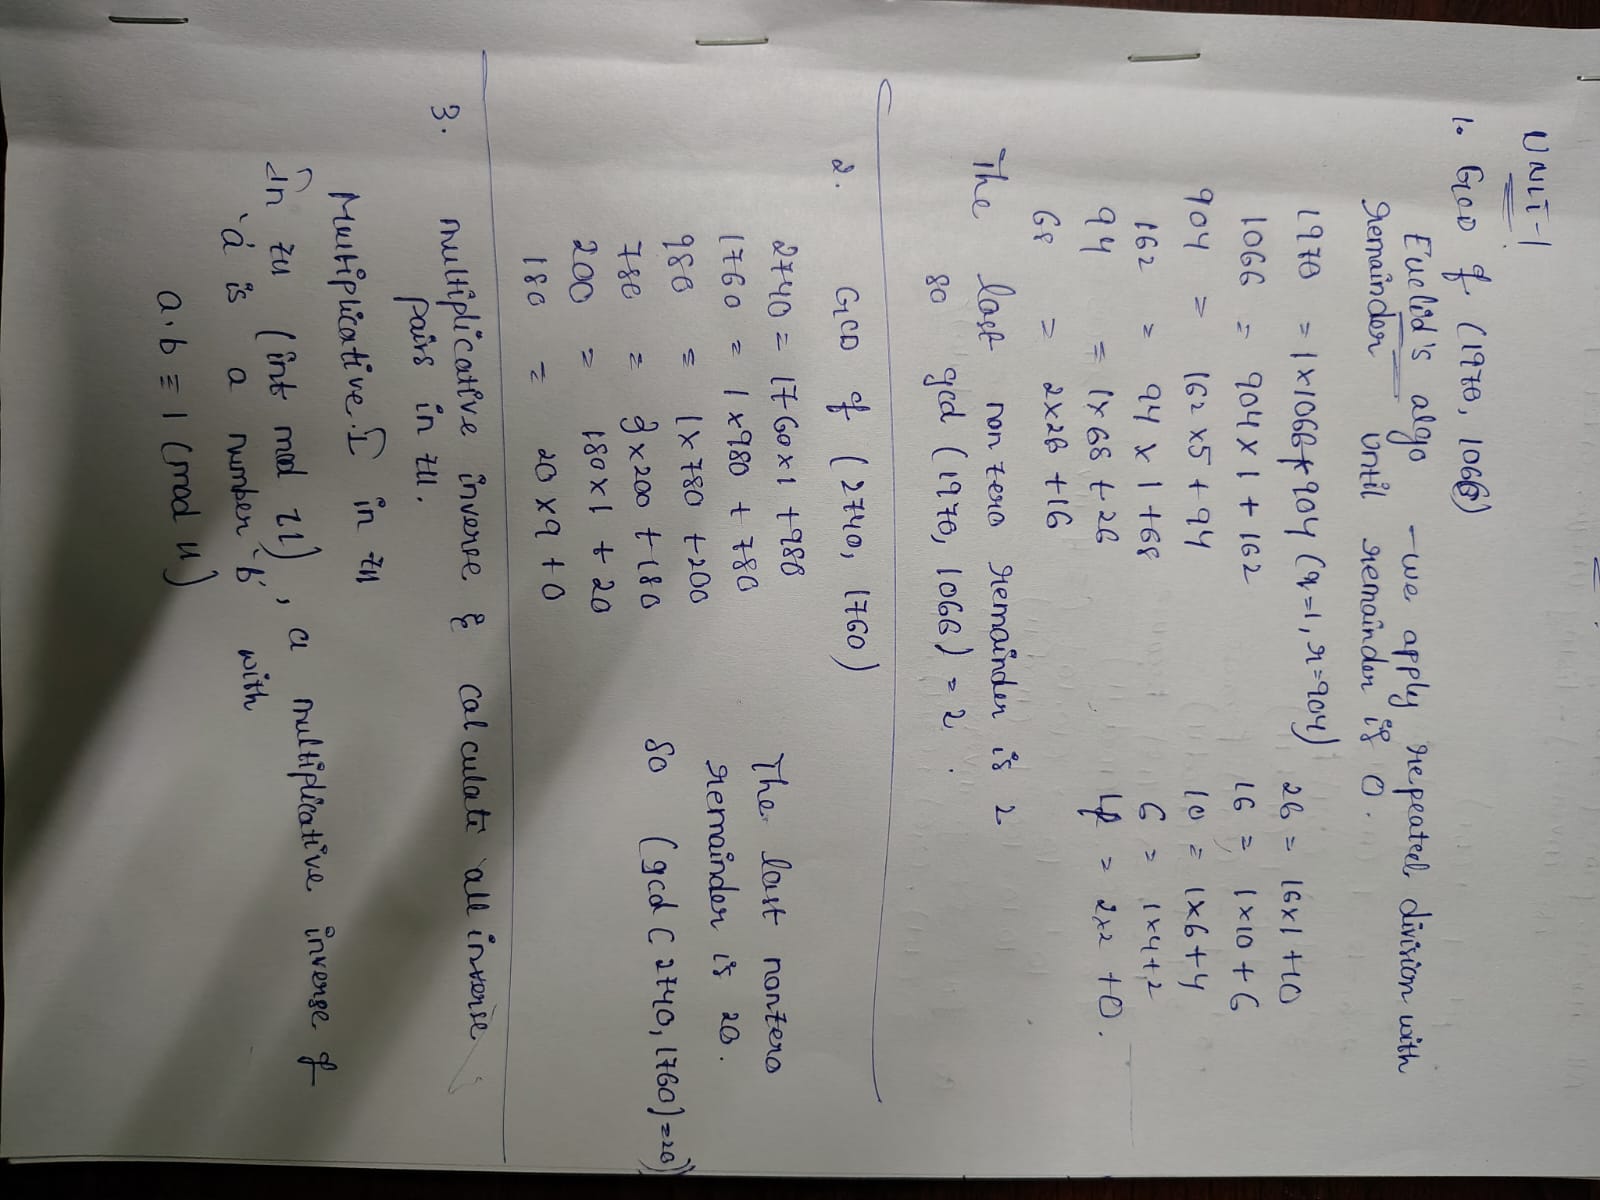 UNIT-1
1. GCD of (1970, 1066)
Euclid's algo - we apply repeated division with
remainder until remainder is 0.
1970 = 1x1066+904 (q=1, r=904)
1066 = 904 x 1 + 162
904 = 162 x5 + 94
162 = 94 x 1 +68
94 = 1x 68 + 26
68 = 2x26 +16
26 = 16x1 +10
16 = 1x10 + 6
10 = 1x6+4
6 = 1x4+2
4 = 2x2 +0.
The last non zero remainder is 2
so gcd (1970, 1066) = 2.
2. GCD of (2740, 1760)
2740 = 1760x1 +980
1760 = 1x980 + 780
980 = 1x780 +200
780 = 3x200 +180
200 = 180x1 + 20
180 = 20 x9 +0
The last nonzero
remainder is 20.
So (gcd (2740, 1760)=20)
3. multiplicative inverse & calculate all inverse
pairs in z11.
Multiplicative.I in z11
In z11 (int mod 11), a multiplicative inverse of
'a' is a number 'b' with
a.b ≡ 1 (mod 11)